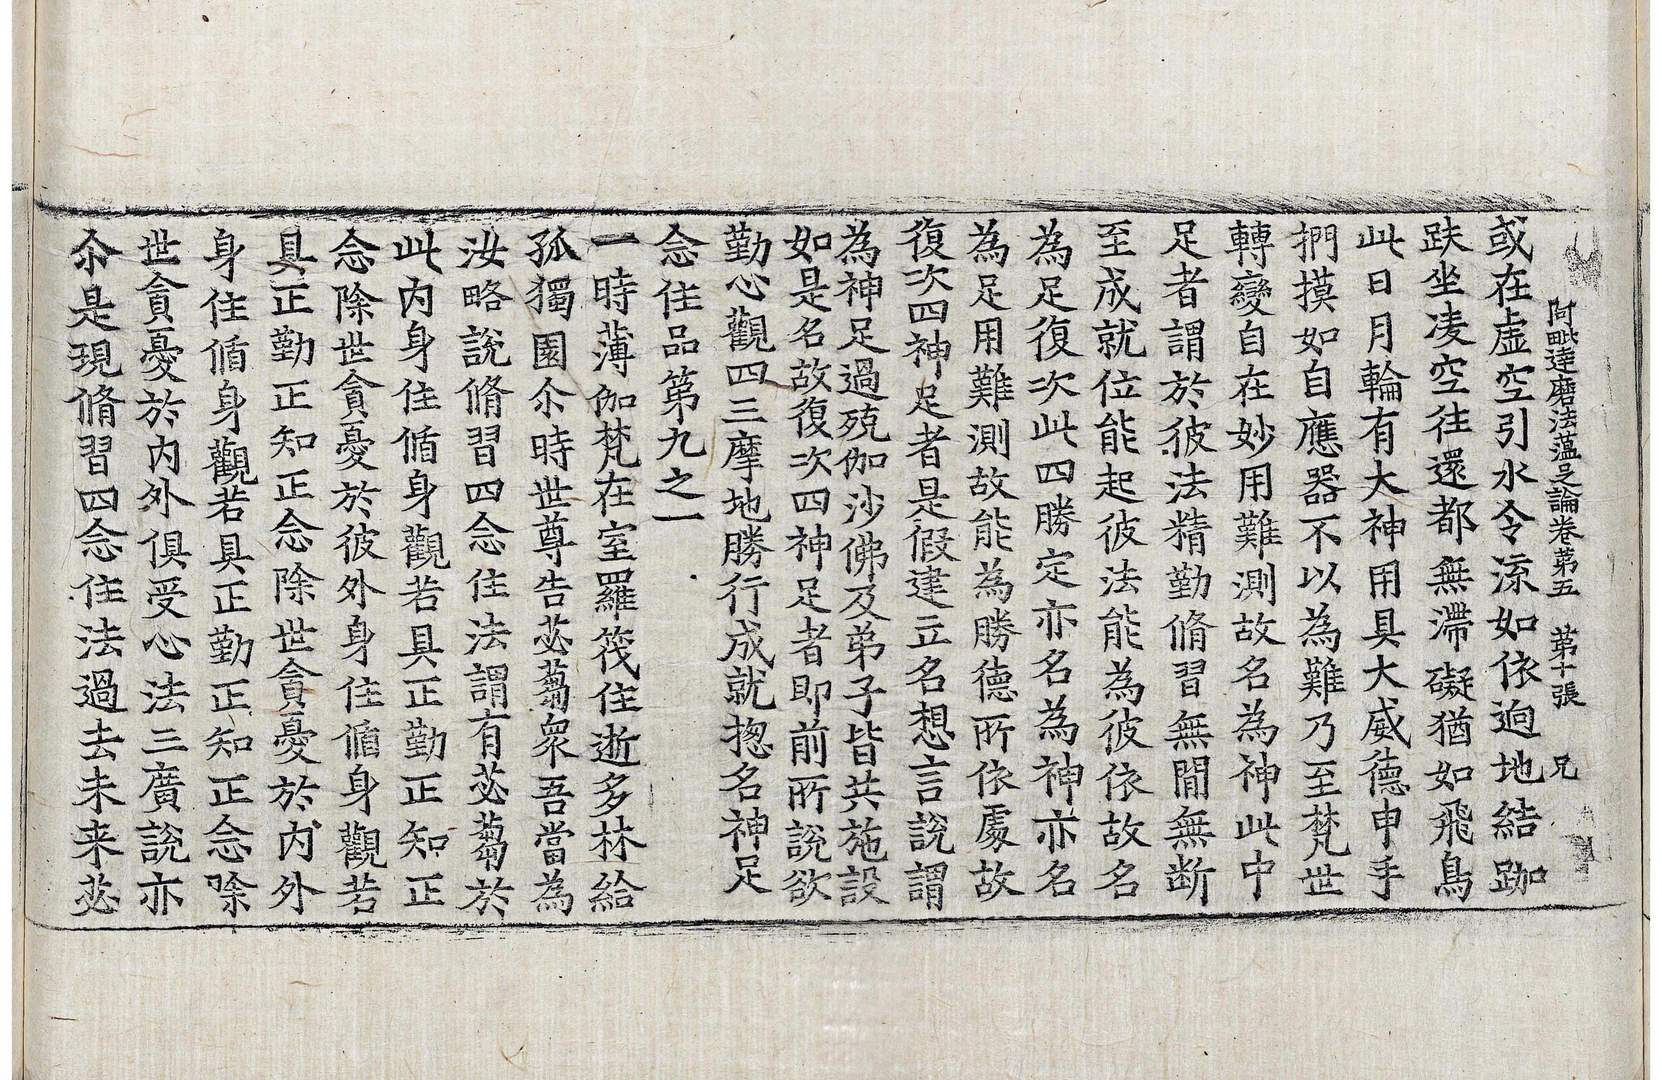 阿毗達磨法蘊足論卷第五　第十張　兄
或在虛空引水令流如依迥地結跏
趺坐凌空往還都無滯礙猶如飛鳥
此日月輪有大神用具大威德申手
捫摸如自應器不以為難乃至梵世
轉變自在妙用難測故名為神此中
足者謂於彼法精勤脩習無間無断
至成就位能起彼法能為彼依故名
為足復次此四勝定亦名為神亦名
為足用難測故能為勝德所依處故
復次四神足者是假建立名想言說謂
為神足過殑伽沙佛及弟子皆共施設
如是名故復次四神足者即前所說欲
勤心觀四三摩地勝行成就揔名神足
念住品第九之一
一時薄伽梵在室羅筏住逝多林給
孤獨園尒時世尊告苾蒭衆吾當為
汝略說脩習四念住法謂有苾蒭於
此內身住循身觀若具正勤正知正
念除世貪憂於彼外身住循身觀若
具正勤正知正念除世貪憂於內外
身住循身觀若具正勤正知正念除
世貪憂於內外俱受心法三廣說亦
尒是現脩習四念住法過去未来苾